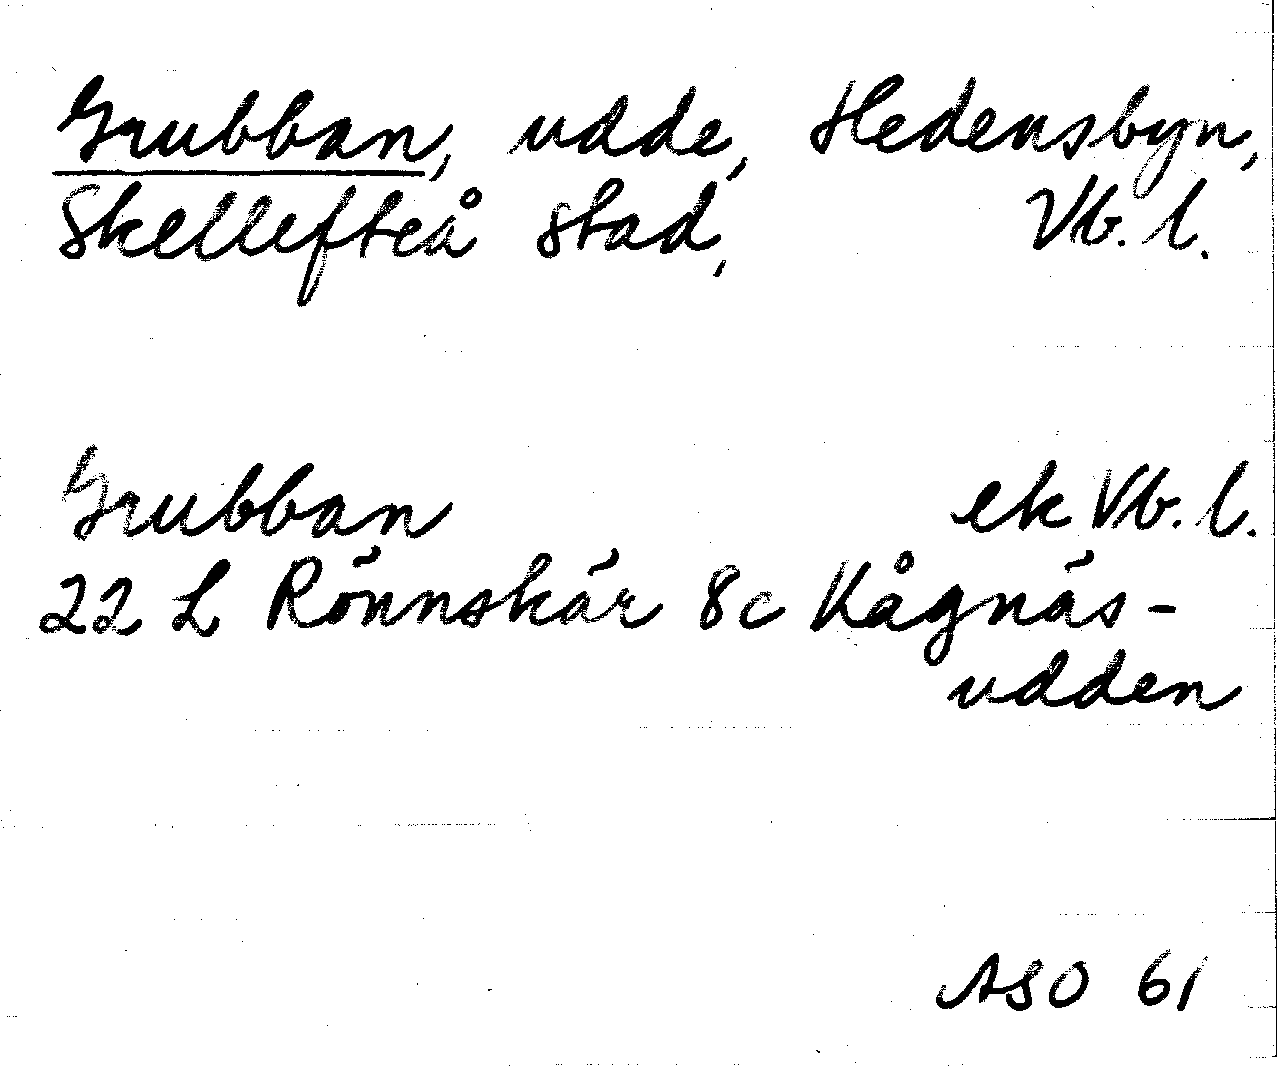 Grubban, udde, Hedensbyn,
Skellefteå stad, Vb. l.
Grubban ek Vb. l.
22 L Rönnskär 8c Kågnäs-
udden
ASO 61